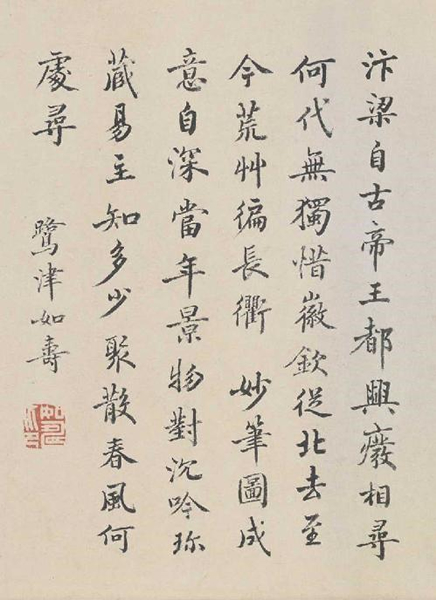 汴梁自古帝王都興癈相尋
何代無獨惜徽欽從北去至
今荒艸徧長衢 妙筆圖成
意自深當年景物對沉吟珎
藏易主知多少聚散春風何
處尋
鷺津如壽